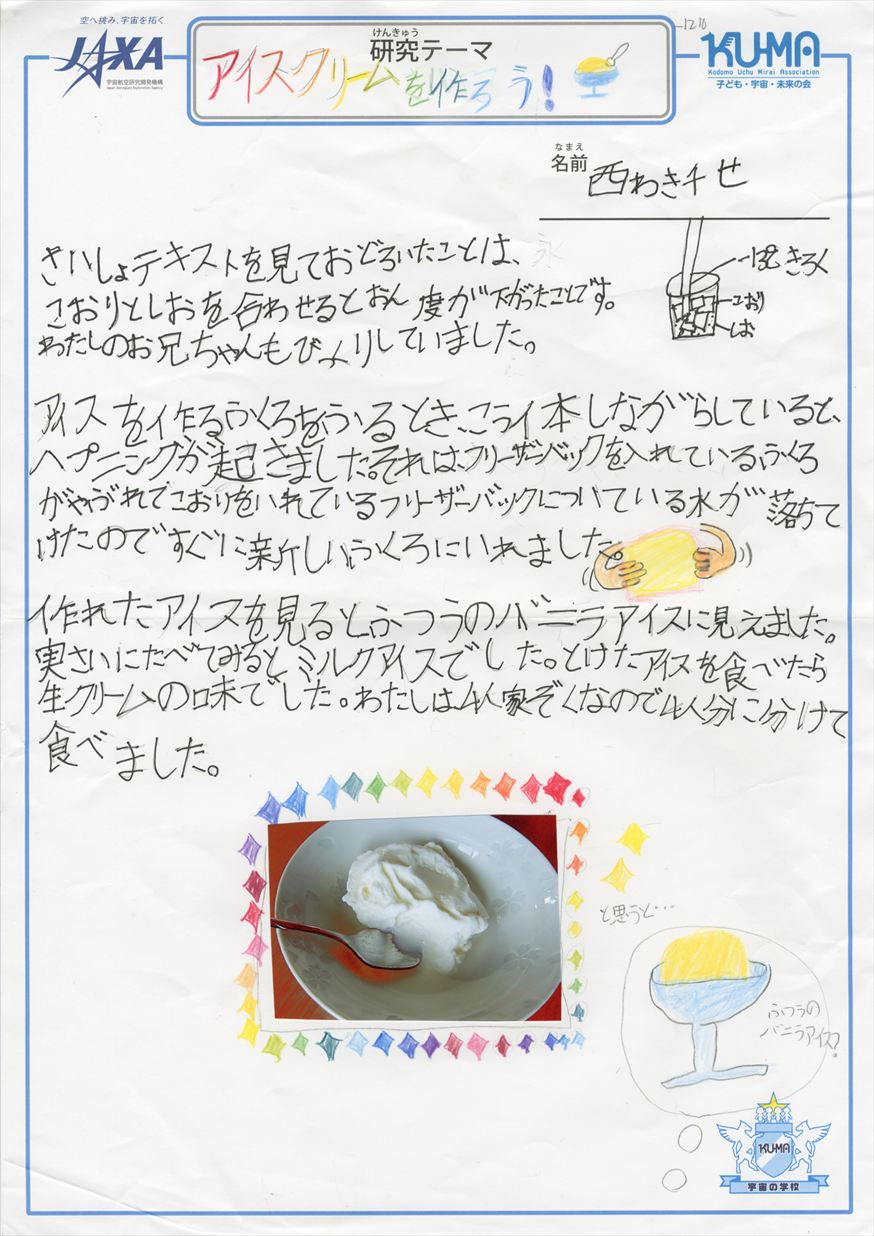 空へ挑み、宇宙を拓く
JAXA
宇宙航空研究開発機構
Japan Aerospace Exploration Agency
けんきゅう
研究テーマ
アイスクリームを作ろう!
1210
KU-MA
Kodomo Uchu Mirai Association
子ども・宇宙・未来の会
なまえ
名前
西わき千せ
さいしょテキストを見ておどろいたことは、
こおりとしおを合わせるとおん度が下がったことです。
わたしのお兄ちゃんもびっくりしていました。
きろく
こおり
しお
アイスを作るふくろをふるとき、こう体しながらしていると、
ハプニングが起きました。それは、フリーザーバックを入れているふくろ
がやぶれてこおりをいれているフリーザーバックについている水が落ちて
けたのですぐに新しいふくろにいれました。
作れたアイスを見るとふつうのバニラアイスに見えました。
実さいにたべてみるとミルクアイスでした。とけたアイスを食べたら
生クリームの味でした。わたしは4人家ぞくなので4人分に分けて
食べました。
と思うと…
ふつうの
バニラアイス?
KU-MA
宇宙の学校